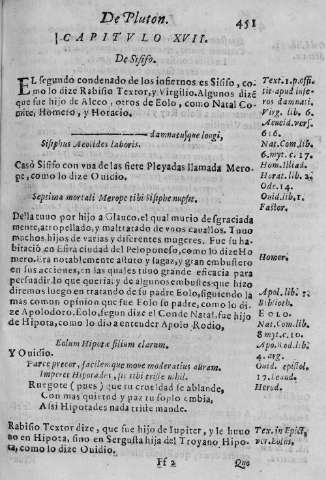 De Pluton.
451
CAPITVLO XVII.
De Sisifo.
EL segundo condenado de los infiernos es Sisifo, co-
mo lo dize Rabisio Textor, y Virgilio. Algunos dizẽ
que fue hijo de Aleco, otros de Eolo, como Natal Co-
mite, Homero, y Horacio.
damnatusque longi,
Sisiphus Aeolides laboris.
Casò Sisifo con vna de las siete Pleyadas llamada Mero-
pe, como lo dize Ovidio.
Septima mortali Merope tibi Sisiphe nupsit.
Della tuuo por hijo a Glauco, el qual murio desgraciada
mente, atropellado, y maltratado de vnos cauallos. Tuuo
muchos hijos de varias y diferentes mugeres. Fue su ha-
bitaciõ en Efira ciudad del Peloponeso, como lo dize Ho
mero. Era notablemente astuto y sagaz, y gran embustero
en sus acciones, en las quales tuuo grande eficacia para
persuadir lo que queria; y de algunos embustes que hizo
diremos luego en tratando de su padre Eolo, siguiendo la
mas comun opinion que fue Eolo su padre, como lo di-
ze Apolodoro. Eolo, segun dize el Conde Natal, fue hijo
de Hipota, como lo dio a entender Apolo Rodio,
Eolum Hipotæ filium clarum.
Y Ouidio.
Parce precor, facilemque move moderatius auram.
Imperet Hipotades, sic tibi triste nihil.
Ruegote (pues) que tu crueldad se ablande,
Con mas quietud y paz tu soplo embia,
Assi Hipotades nada triste mande.
Rabisio Textor dize, que fue hijo de Iupiter, y le huuo
no en Hipota, sino en Sergesta hija del Troyano Hipo-
ta, como lo dize Ouidio.
Ff 2
Quo
Text. 1. p. offi.
tit. apud infe-
ros damnati.
Virg. lib. 6.
Aeneid. vers.
616.
Nat. Com. lib.
6. myt. c. 17.
Hom. Illiad.
Horat. lib. 2.
Ode. 14.
Ouid. lib. 1.
Fastor.
Homer.
Apol. lib. 1.
Biblioth.
Nat. Com. lib.
8 myt. c. 10.
Apo. Rod. lib.
4. arg.
Ouid. epistol.
17. Leand.
Herod.
Tex. in Epict,
ver. Eolus.